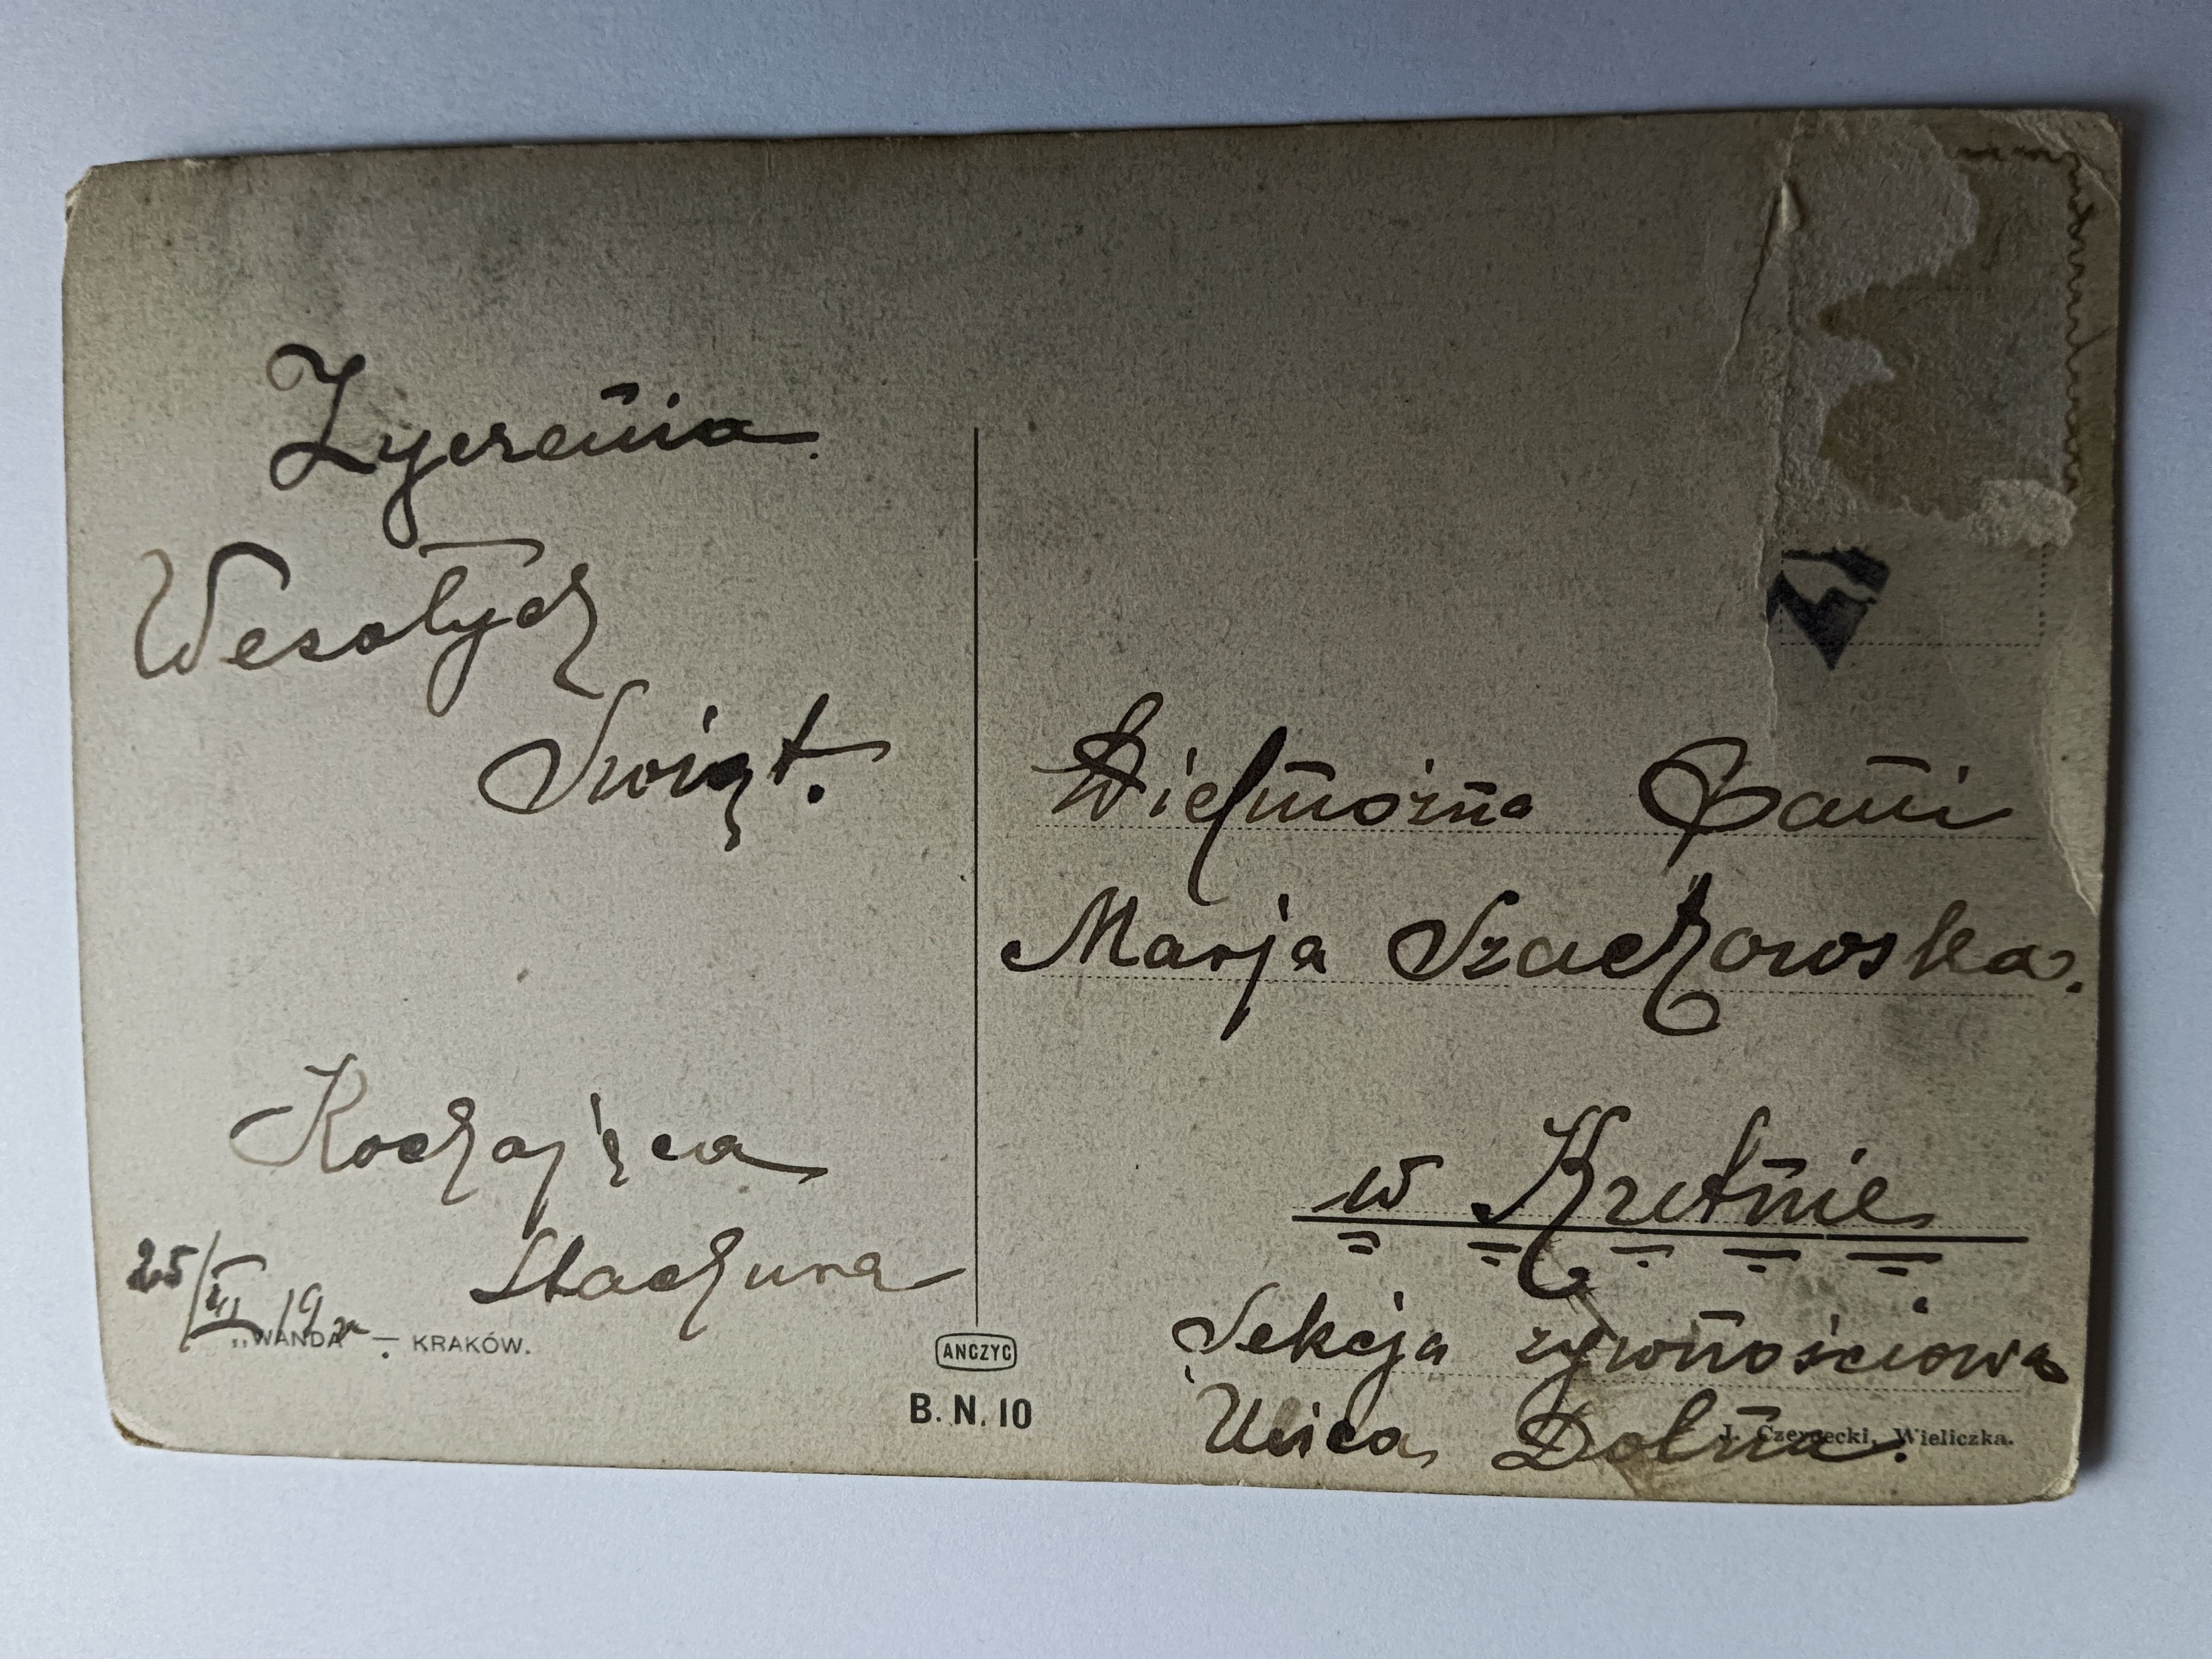 Zyczenia.
Wesołych
Swiąt.
Kochająca
Stachura
25/III 19
„WANDA" — KRAKÓW.
ANCZYC
B. N. 10
Wielmożna Pani
Marja Szachowska.
w Kutnie
Sekcja żywnościowa
Ulica Dolna.
J. Czernecki, Wieliczka.